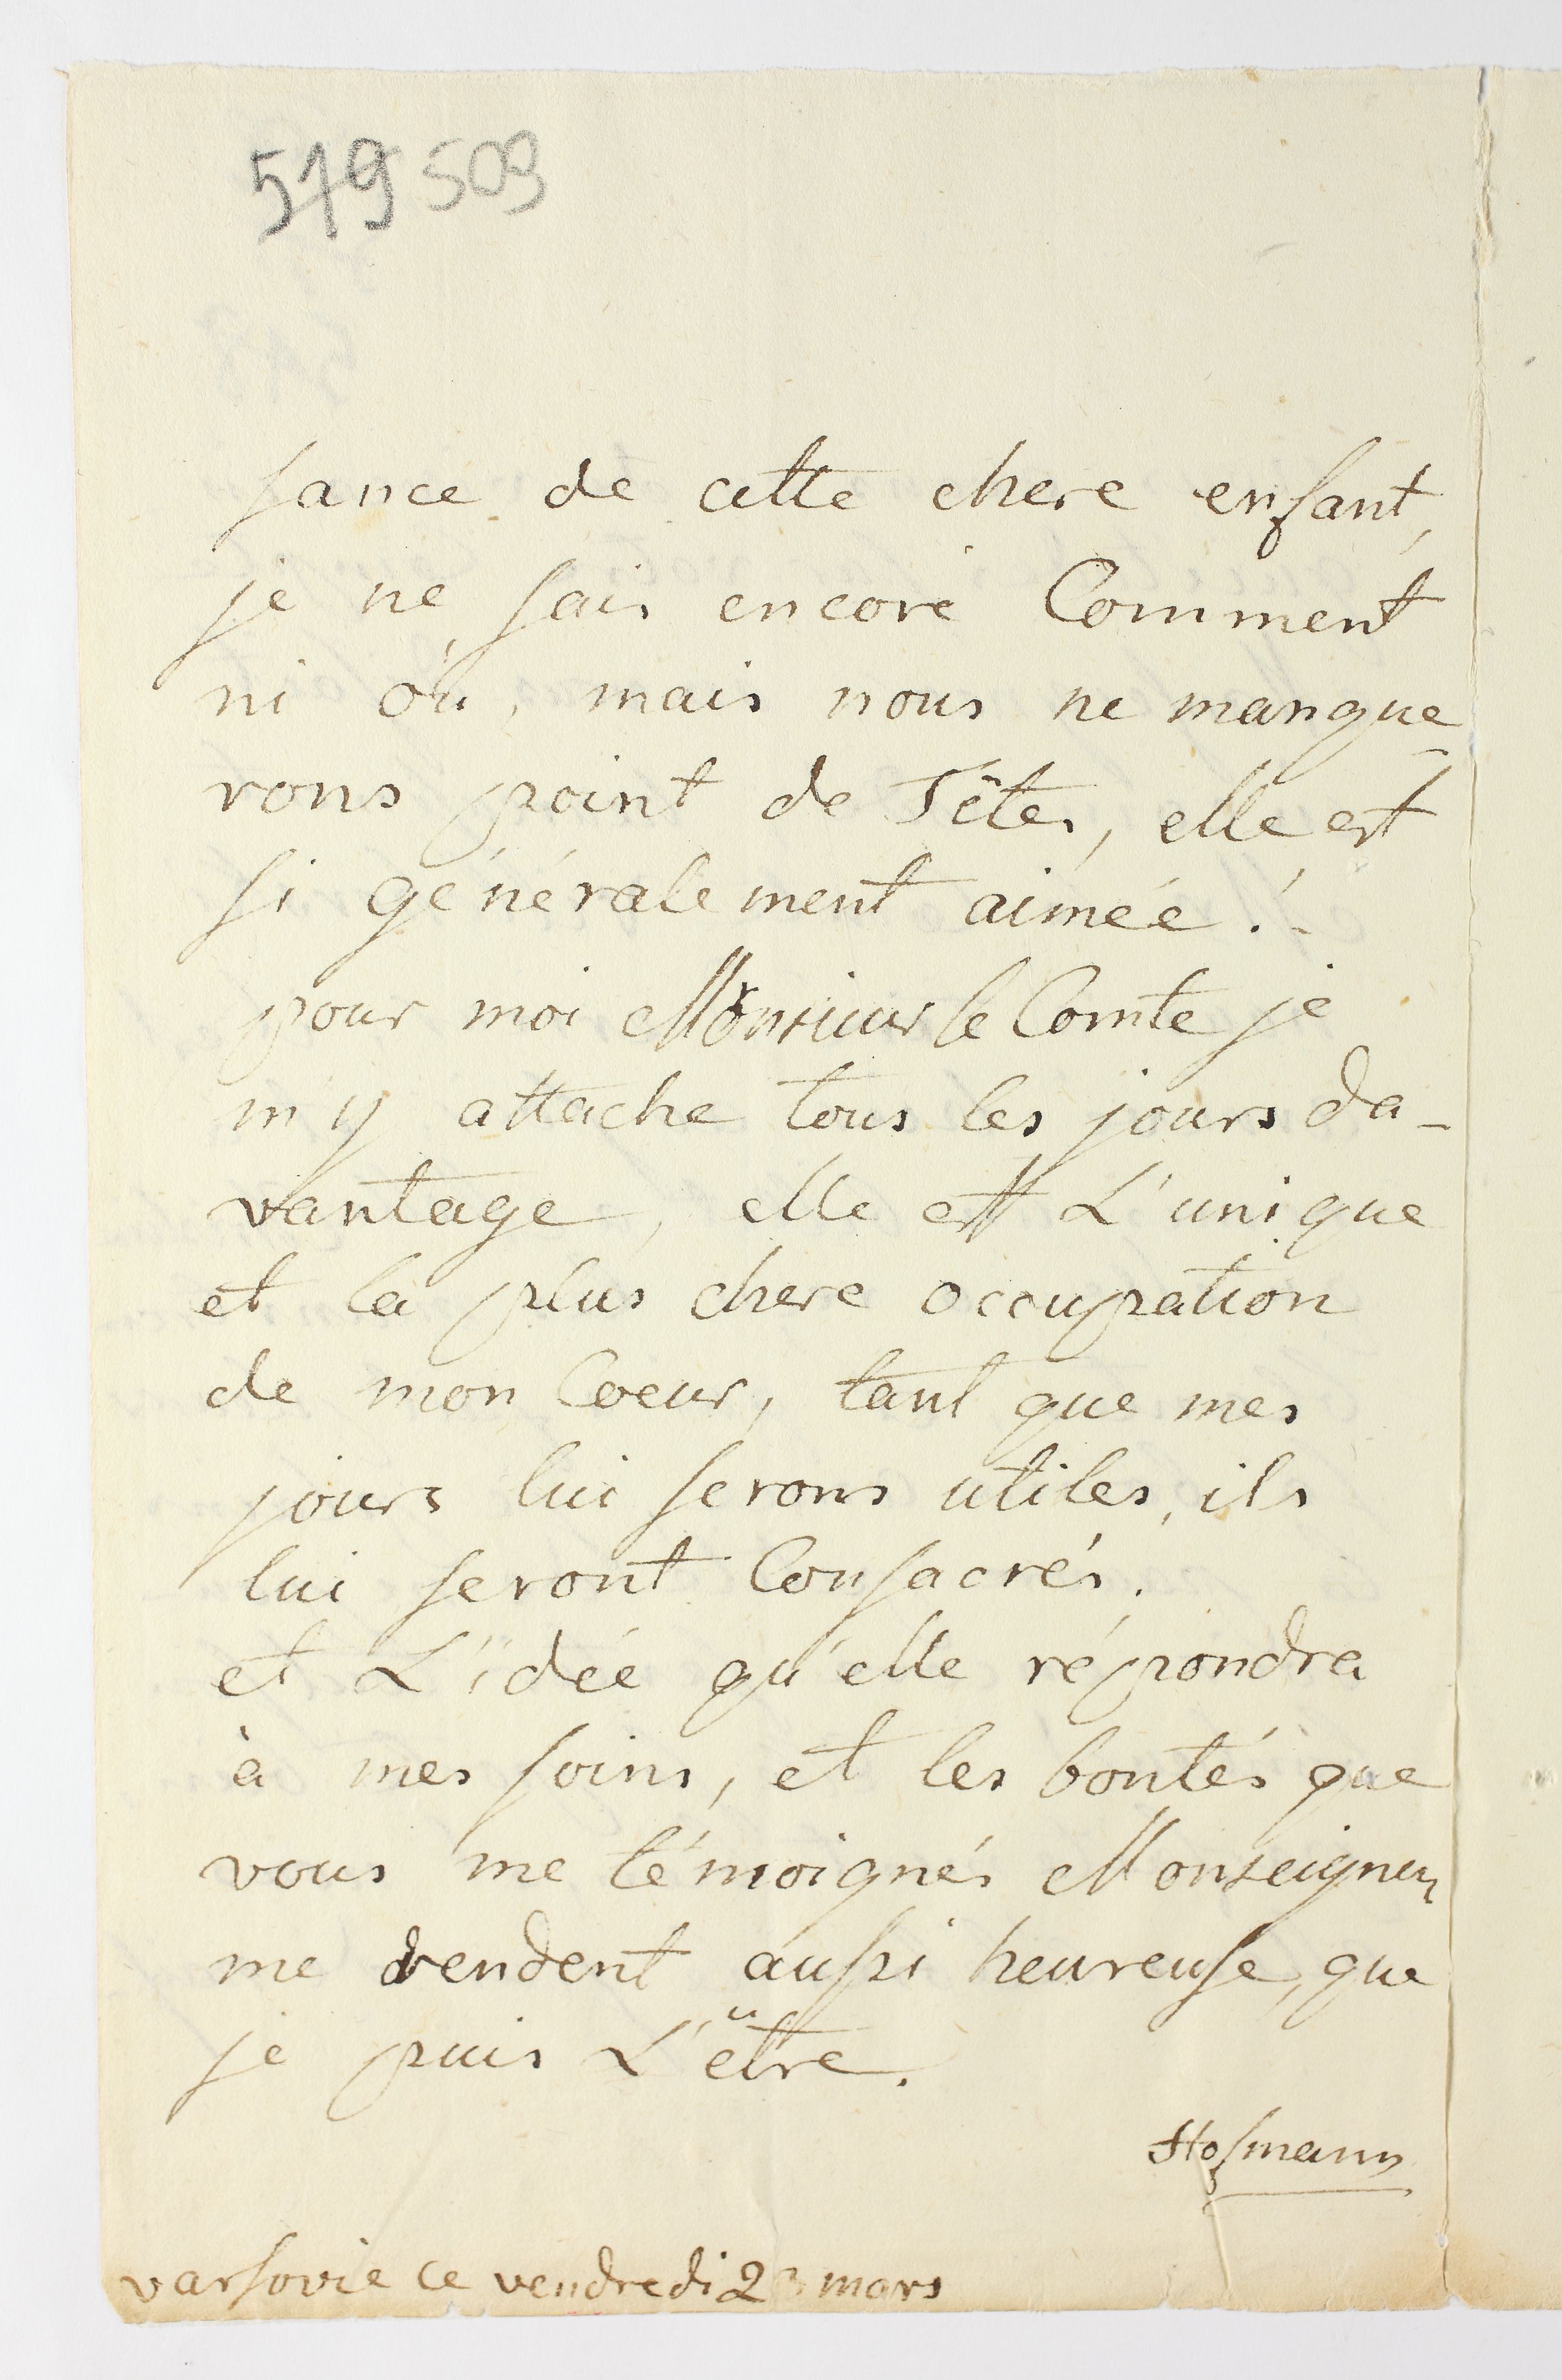 519 509
sance de cette chere enfant,
je ne sais encore Comment
ni où, mais nous ne manque
rons point de Fêtes, elle est
si généralement aimée!
pour moi Monsieur le Comte je
m'y attache tous les jours da-
vantage, elle est L'unique
et la plus chere occupation
de mon Coeur, tant que mes
jours lui serons utiles, ils
lui seront Consacrés.
et L'idée qu'elle répondra
à mes soins, et les bontés que
vous me témoignés Monseigneur
me rendent aussi heureuse, que
je puis L'être.
Hofmann
varsovie ce vendredi 23 mars